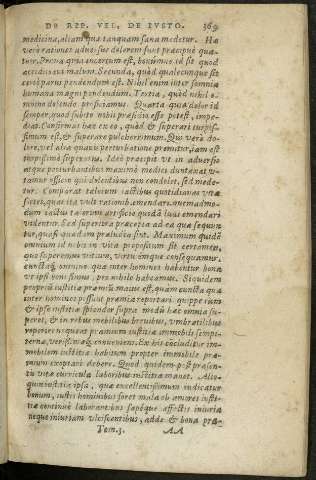 DE REP. VEL, DE IVSTO. 369
medicina, aliam quæ tanquam sana medetur. Hæ
verò rationes aduersus dolorem sunt præcipuè qua-
tuor. Prima quia incertum est, bonúmne id sit quod
accidit an malum. Secunda, quòd qualecunque sit
est parui pendendum est. Nihil enim inter somnia
humana magni pendendum. Tertia, quòd nihil o-
mnino dolendo proficiamus. Quarta quia dolor id
semper, quod subitò nobis præsidio esse potest, impe-
diat. Confirmat hæc ex eo, quòd & superari turpis-
simum est, & superare pulcherrimum. Qui verò do-
lore, vel alia quauis perturbatione premitur, iam est
turpissimè superatus. Ideò præcipit vt in aduersis
atque perturbantibus maximè medici vtamur
officio qui dolendum non condolet, sed mede-
tur. Comparat talorum iactibus quotidianas vitæ
sortes, quæ ita vult ratione emendare, quemadmo-
dum iactus talorum artificio quodã lusus emendari
videntur. Sed superiora præcepta ad ea quæ sequun
tur, quasi quædam præludia sunt. Maximum quidẽ
omnium id nobis in vita propositum sit certamen,
quo superemus vitium, virtutémque consequamur,
cunctáq; omnino quæ inter homines habentur bona
vt ipsi boni simus, pro nihilo habeamus. Siquidem
proprium iustitiæ præmiũ maius est, quàm cuncta quæ
inter homines possint præmia reputari. quippe cum
& ipse iustitiæ splendor supra modũ hæc omnia su-
peret, & in rebus mobilibus breuibus, vmbratilibus
reperiri nequeat præmium iustitiæ immobili sempi-
ternæ, verissimæq; conueniens. Ex his cõcluditur im-
mobilem iustitiæ habitum propter immobile præ-
mium exoptari debere. Quod quidem post præsen-
tis vitæ curricula laboribus iustitiæ manet. Alio-
quin iustitia ipsa, quæ excellentissimum iudicatur
bonum, iustis hominibus foret mala ob amorem iusti-
tiæ continuò laborantibus sæpéque affectis iniuria
neque iniuriam vlciscentibus, adde & bona præ-
Tom.5. AA